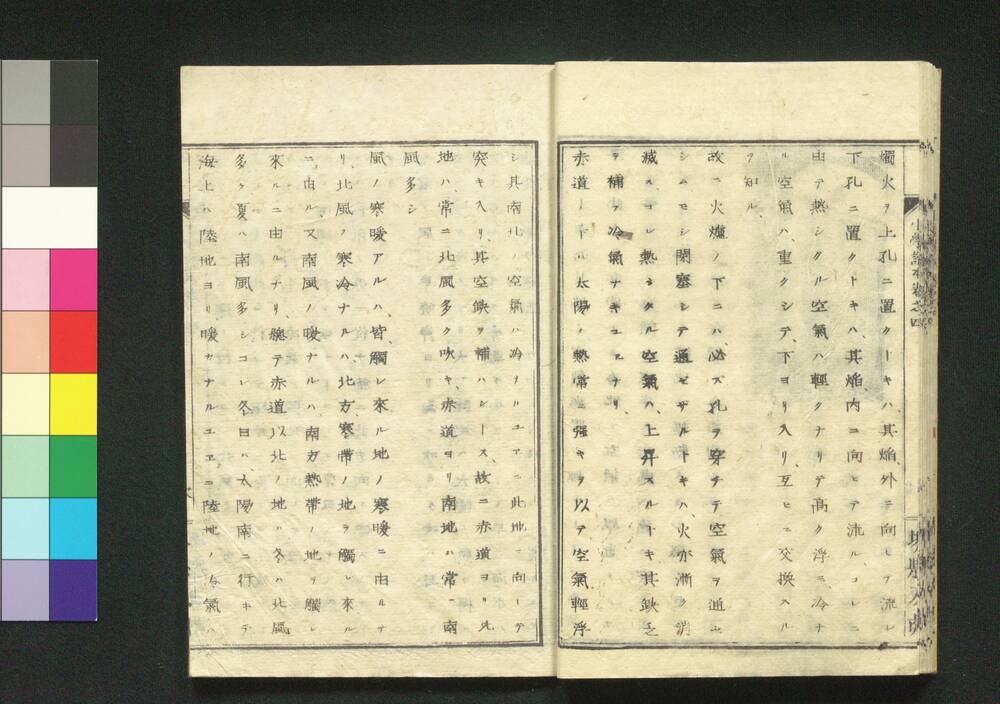 燭火ヲ上孔ニ置クトキハ、其焔、外ニ向ヒテ流レ
下孔ニ置クトキハ、其焔内ニ向ヒテ流ル、コレニ
由テ熱シタル空氣ハ輕クナリテ高ク浮ミ、冷ナ
ル空氣ハ、重クシテ、下ヨリ入リ、互ヒニ交換スル
ヲ知ル、
故ニ火爐ノ下ニハ、必ズ孔ヲ穿チテ空氣ヲ通ゼ
シム、モシ閉塞シテ通ゼザルトキハ、火亦漸ク消
滅ス、コレ熱シタル空氣ハ、上昇スルトキ其缺乏
ヲ補フ冷氣ナキユヱナリ、
赤道ノ下ハ、太陽ノ熱常ニ強キヲ以テ空氣輕浮
シ其南北ノ空氣ハ冷ナルユヱニ此地ニ向ヒテ
突キ入リ、其空缺ヲ補ハントス、故ニ赤道ヨリ北
地ハ、常ニ北風多ク吹キ、赤道ヨリ南地ハ常ニ南
風多シ
風ノ寒暖アルハ、皆觸レ來ル地ノ寒暖ニ由ルナ
リ、北風ノ寒冷ナルハ、北方寒帶ノ地ヲ觸レ來ル
ニ由ル、又南風ノ暖ナルハ、南方熱帶ノ地ヲ觸レ
來ルニ由ルナリ、總テ赤道以北ノ地ハ、冬ハ北風
多ク夏ハ南風多シコレ冬日ハ、太陽南ニ行キテ
海上ハ陸地ヨリ暖カナルユヱニ陸地ノ冷氣ハ
小學讀本卷之四